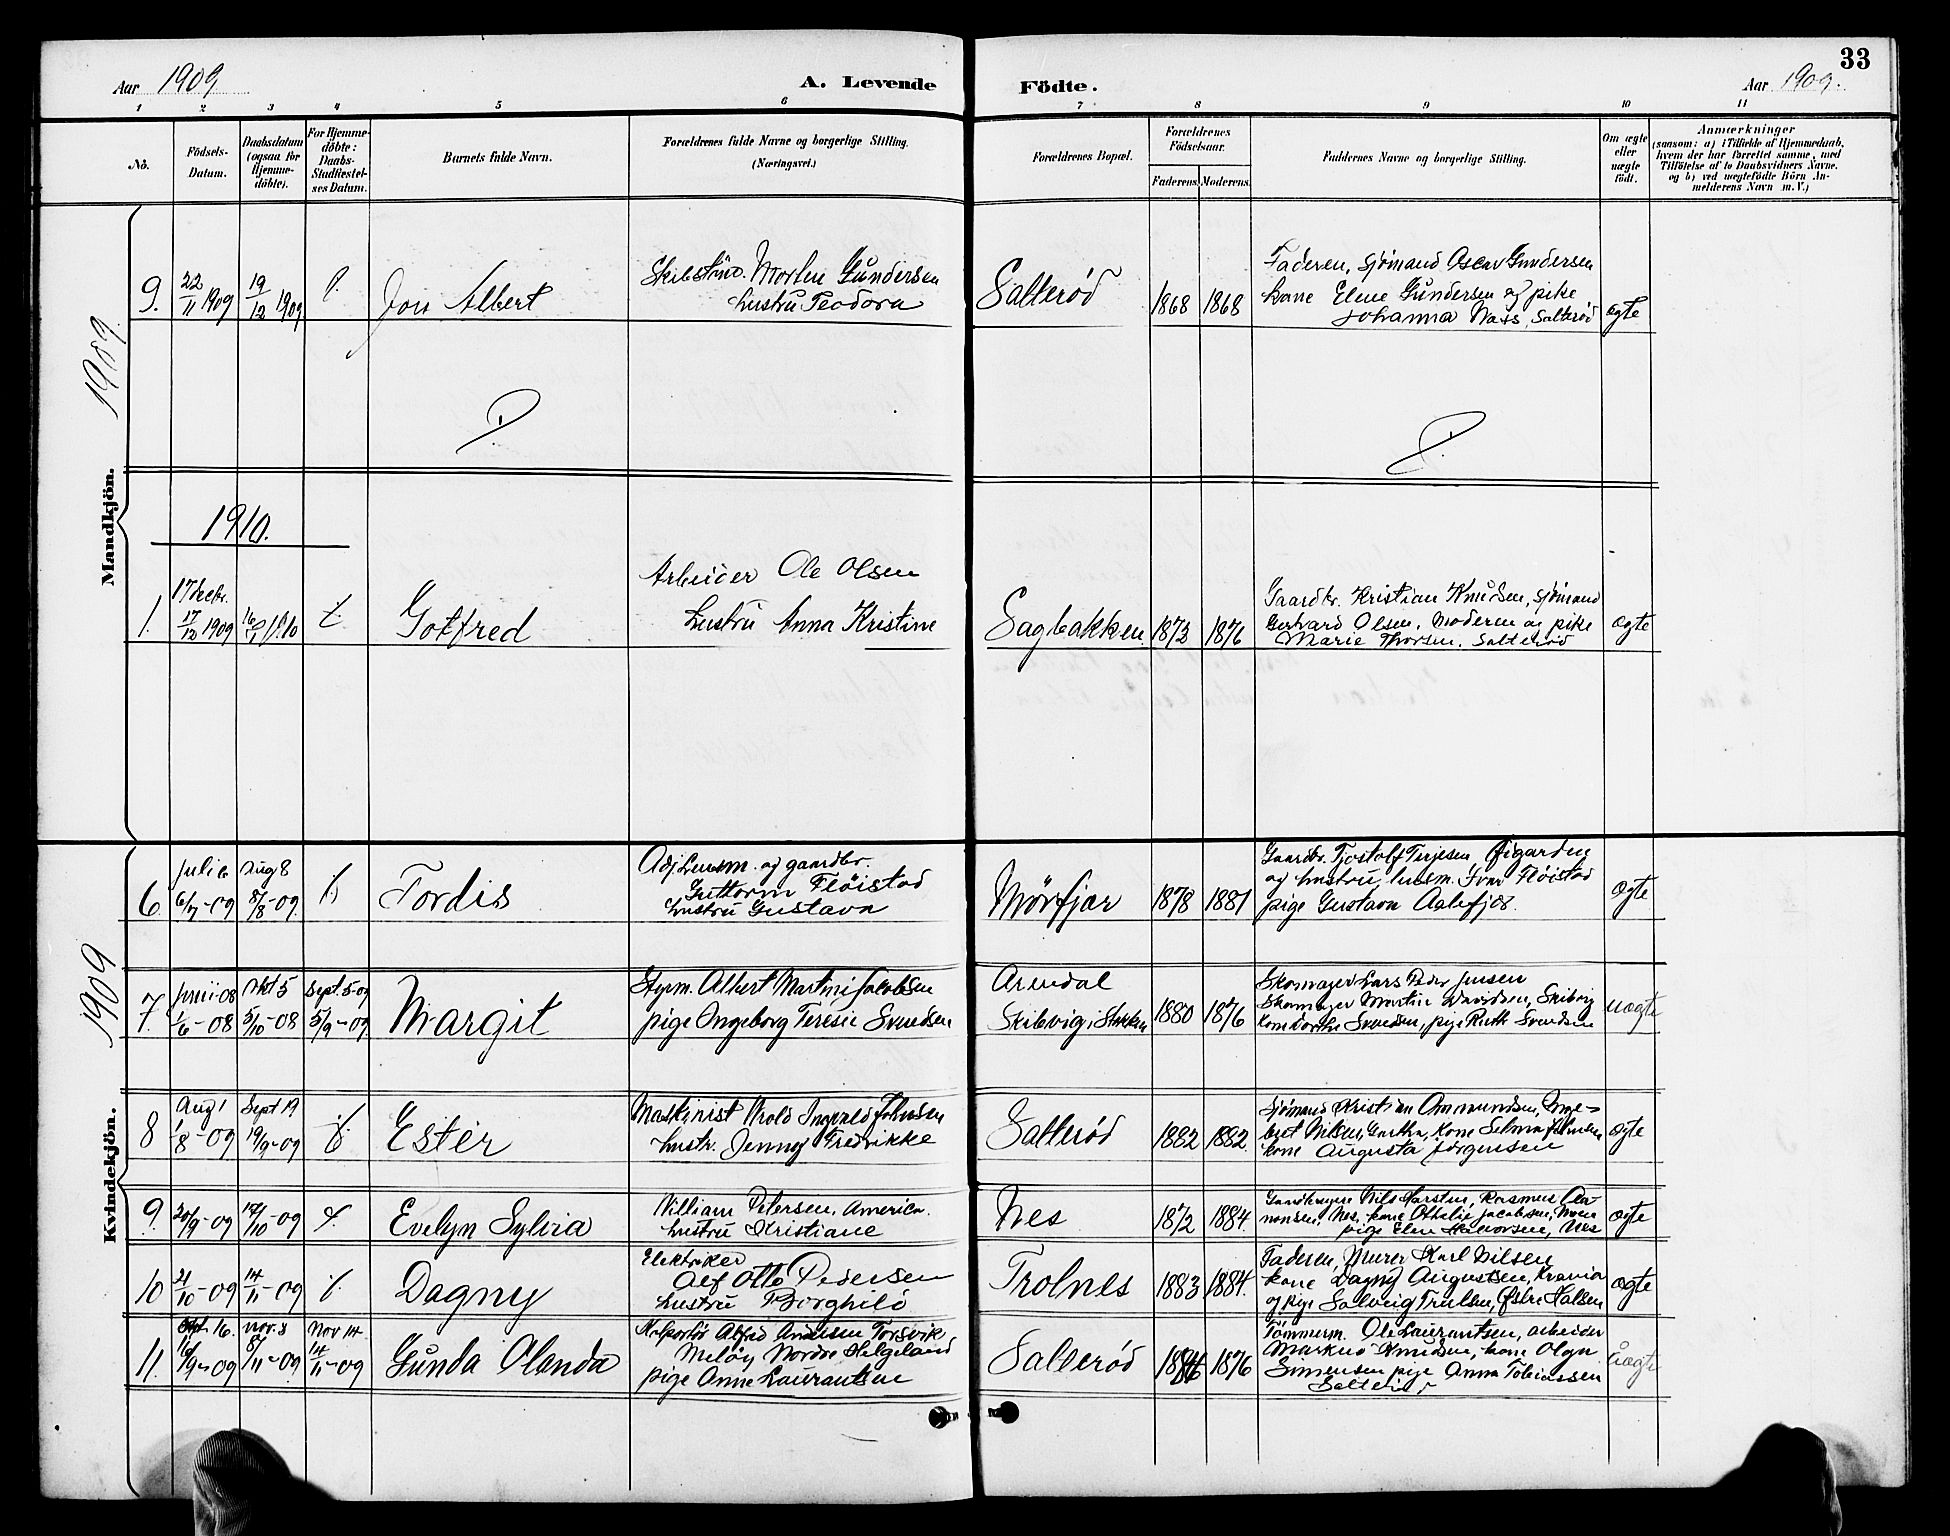 33
Aar 1909
A. Levende Födte.
Aar 1909.
1 2 3 4 5 6 7 8 9 10 11
No.
Födsels-Datum.
Daabsdatum (ogsaa for Hjemme-döbte).
For Hjemme-döbte: Daabs-Stadfæstel-ses Datum.
Barnets fulde Navn.
Forældrenes fulde Navne og borgerlige Stilling.
(Næringsvei.)
Forældrenes Bopæl.
Forældrenes Födselsaar.
Faderens. Moderens.
Faddernes Navne og borgerlige Stilling.
Om ægte eller uægte födt.
Anmærkninger
(saasom: a) i Tilfælde af Hjemmedaab,
hvem der har forrettet samme, med
Tilföielse af to Daabsvidners Navne.
og b) ved uægtefödte Börn An-
melderens Navn m. V.)
Mandkjön.
1909
9. 22/11 1909 19/12 1909 Jon Albert
Morten Gundersen
hustru Teodora
Salteröd 1868 1868
Faderen, Sjömand Oscar Gundersen
kone Elene Gundersen og pike
Johanna Næss, Salteröd
ægte
1910.
1. 17 Decbr. 17/12 1909 Gotfred
Arbeider Ole Olsen
hustru Anna Kristine
Sagbakken 1873 1876
Gaardbr. Kristian Knudsen, Sjömand
Gerhard Olsen, Moderen og pike
Marie Thorsen, Salteröd
ægte
Kvindekjön.
1909
6. Juli 6 6/7-09 Aug 8 8/8-09. Tordis
Adj. Lensm. og gaardbr.
Guttorm Flöistad
hustru Gustava
Mörfjær 1878 1881
Gaardbr. Tjostolf Terjesen,
og hustru, lensm. Ivar Flöistad
pige Gustava Aalefjær.
ægte
7. Juni-08 1/6-08 Okt 5 5/10-08 Sept. 5-09 5/9-09 Margit
Styrm. Albert Martini Jacobsen
pige Ingeborg Teresie Svendsen
Arendal
Skibvig i Stokken 1880 1876
Skomager Lars Peder Jensen
Skomager Martin Davidsen, Skibvig
Kone Dorthe Svendsen, pige Ruth Svendsen
uægte
8 Aug 1 1/8-09 Sept 19 19/9-09 Ester
Maskinist Arold Ingvald Johnsen
hustr. Jenny Fredrikke
Salteröd 1882 1882.
Sjömand Kristian Ommundsen, Inge-
bret Nilsen, Kone Selma Johnsen
kone Augusta Jörgensen
ægte
9. 20/9-09 /10-09 Evelyn Sylvia
William Petersen, America.
hustru Kristiane
Nes 1872 1884.
Nils Karsten, Rasmus Aa-
nonsen, Nes, kone Othelie Jacobsen,
pige Elen Halvorsen, Nes
ægte
10 21/10-09 14/11-09 Dagny
Elektriker
Alf Otto Pedersen
hustru Borghild
Trolnes 1883 1884.
Faderen, Murer Karl Nilsen
kone Dagny Augustsen,
og pige Solveig Trulsen, Östre Halsen
ægte
11. 16. 16/9-09 Nov. 8 8/11-09 Nov 14. 14/11-09 Gunda Olenda
Kolportör Alfred Andersen Torsvik
Melöy Nordre Helgeland
pige Anne Laurantsen
Salteröd 1876
Tömmerm. Ole Laurantsen, arbeider
Markus Knudsen, kone Olga
Simensen pige Anna Tobiassen
Salteröd
uægte